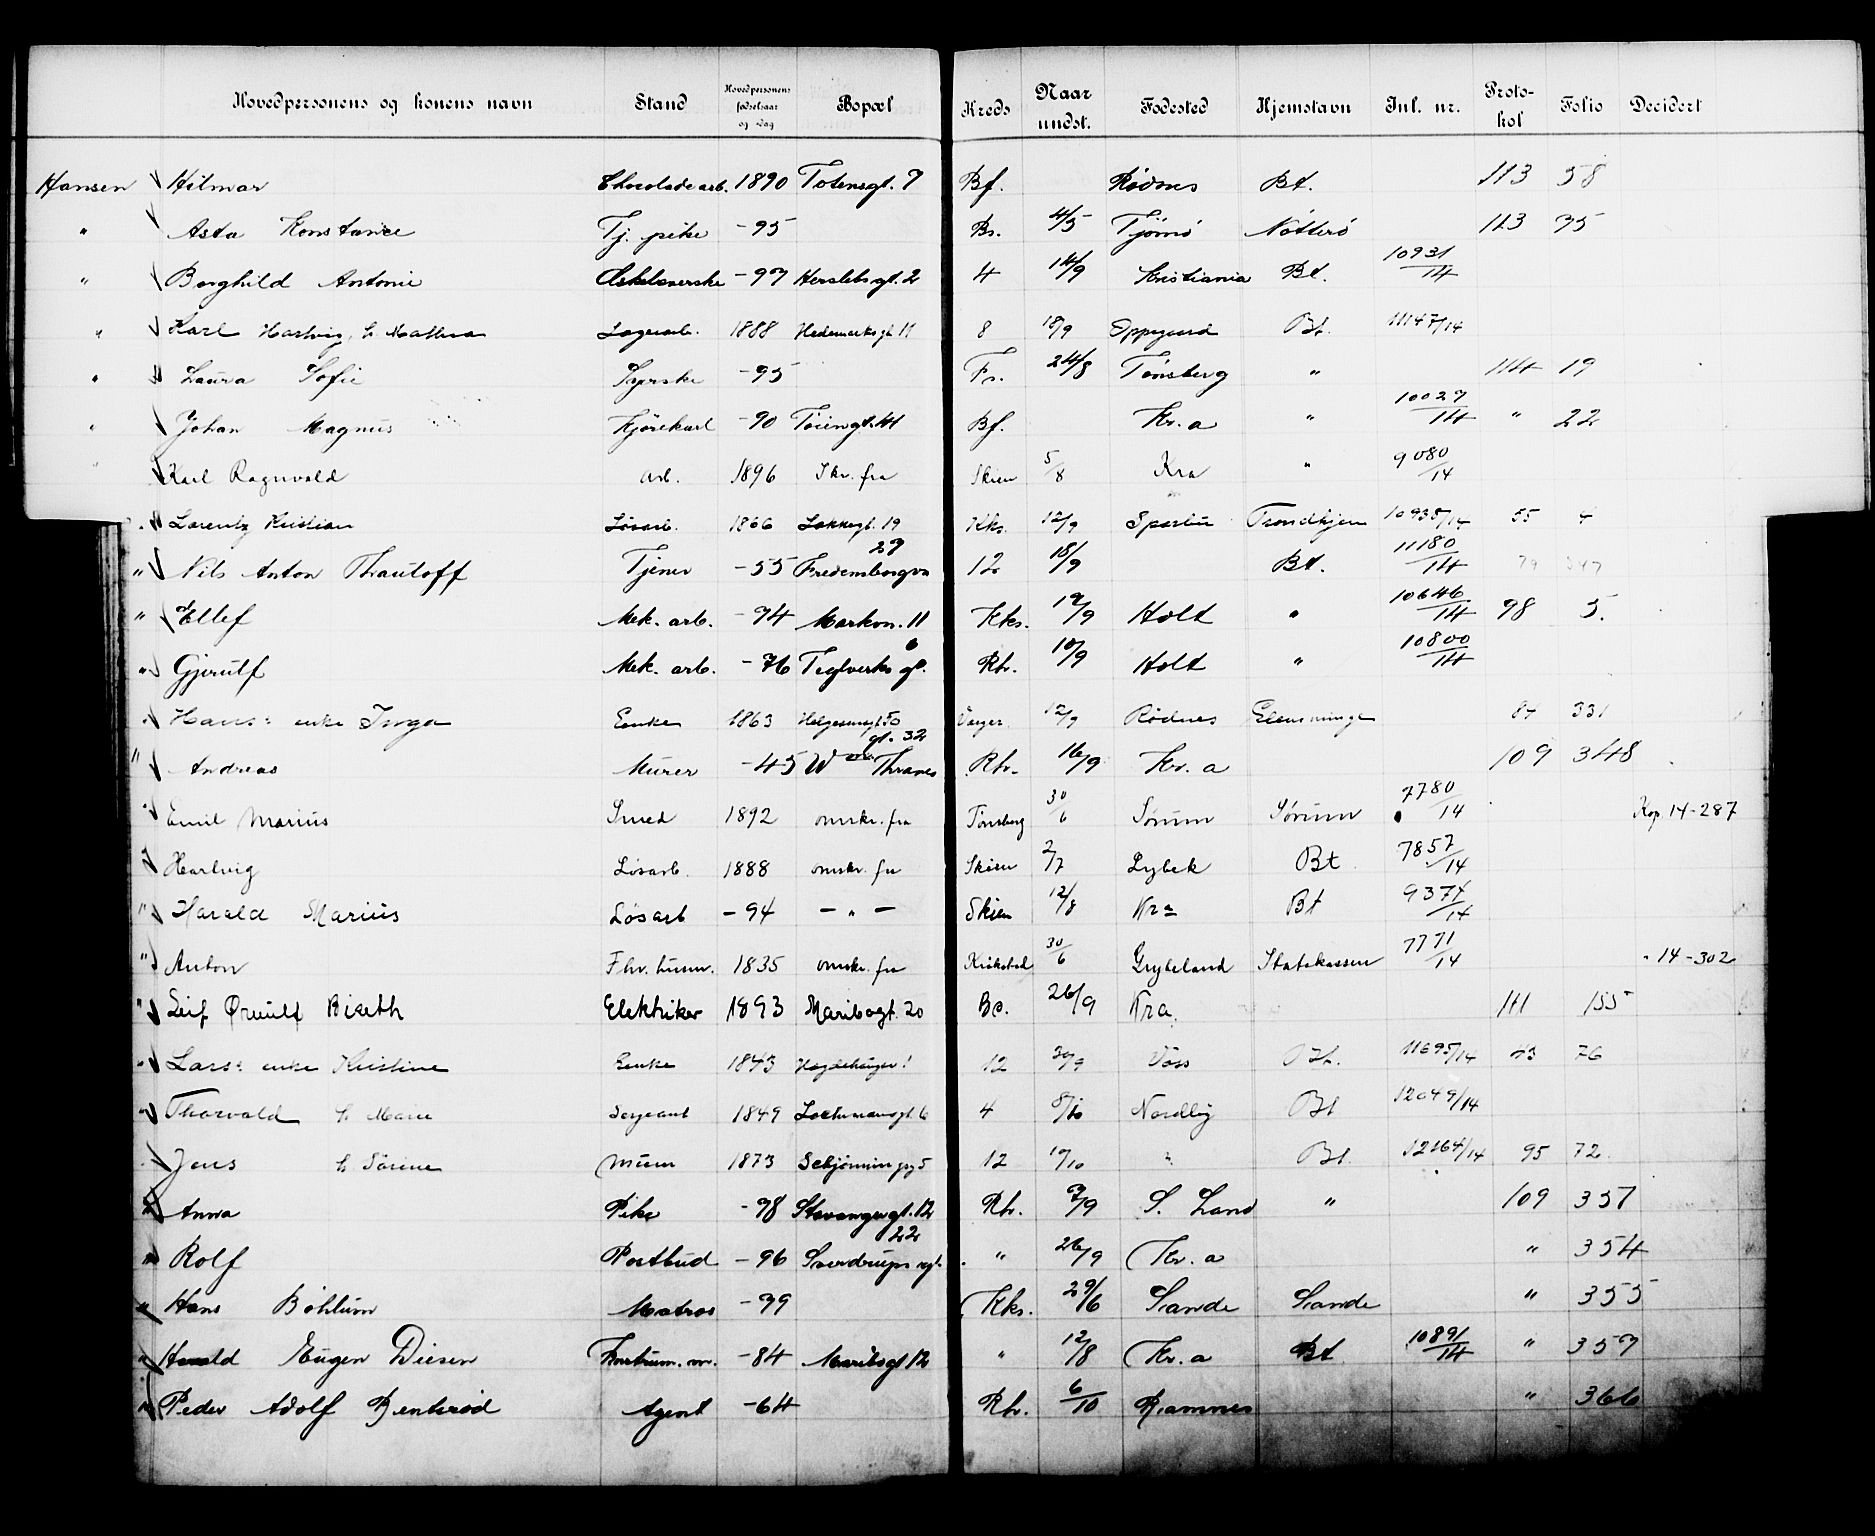 Hovedpersonens og konens navn Stand Hovedpersonens fødselsaar og dag Bopæl Kreds Naar undst. Fødested Hjemstavn Inl. nr. Protokol Folio Decidert
Hansen Hilmar Chocoladearb. 1890 Totensgt. 7 Bf. Rødnes Bt. 113 58
" Asta Konstance Tj. pike -95 Bs. 4/5 Tjømø Nøtterø 113 75
" Borghild Antonie -97 Herslebsgt. 2 4 14/9 Kristiania Bt. 10931/14
" Karl Hartvig, h. Mathea Lagerarb. 1888 Hedemarksgt. 11 8 18/9 Oppegaard Bt. 11147/14
" Laura Sofie Syerske -95 Fs. 24/8 Tønsberg " 114 19
" Johan Magnus Kjørekarl -90 Tøiengt. 41 Bf. Kr.a " 10027/14 " 22
" Karl Ragnvald arb. 1896 Skr. fra Skien 5/8 Kra " 9080/14
" Lorentz Kristian Løsarb. 1866 Lakkegt. 19 Kks. 12/9 Sparbu Trondhjem 10935/14 55 4
" Nils Anton Thrautoff Tjener -55 Fredensborgvn 27 12 18/9 Bt. 11180/14 79 347
" Ellef Mek. arb. -74 Markvn. 11 Kks. 12/9 Holt " 10646/14 98 5.
" Gjerulf Mek. arb. -76 Teglverksgt. 6 Rh. 10/9 Holt " 10800/14
" Hans: enke Inga Enke 1863 Helgesensgt. 50 Varger 12/9 Rødnes Glemminge 87 331
" Andreas Murer -45 Thranes gt. 32 Rh. 16/9 Kr.a 109 348
" Emil Marius Smed 1892 omskr. fra Tønsberg 30/6 Sørum Sørum 7780/14 Kop. 14-287
" Hartvig Løsarb. 1888 omskr. fra Skien 2/7 Lybek Bt. 7857/14
" Harald Marius Løsarb -94 - " - Skien 12/8 Kra Bt 9374/14
" Anton Fhv. husm. 1835 omskr. fra Kråkstad 30/6 Grydeland Statskassen 7771/14 " 14-302
" Leif Ørnulf Biseth Elektriker 1893 Maribogt. 20 Bs. 26/9 Kra. 111 155
" Lars: enke Kristine Enke 1843 Hagdehaugen 1 12 30/9 Voss Bt. 11695/14 43 76
" Thorvald h. Marie Sergeant 1849 4 8/10 Nordby Bt 12049/14
" Jens h. Sørine Murer 1873 Schjønninggs 5 12 10/10 " Bt. 12164/14 95 72
" Anna Pike -98 Stavangergt. 12 Rh. 9/9 S. Land " 109 357
" Rolf Postbud -96 Sverdrupsgt. 22 " 26/9 Kr.a " 354
" Hans Bøhlum Matros -79 Kks. 29/6 Sande Sande " 355
" Harald Eugen Diesen Instrum. m. -84 Maribogt 12 " 12/8 Kr.a Bt 10891/14 " 359
" Peder Adolf Bentsrød Agent -64 Rh. 6/10 Ramnes " 366